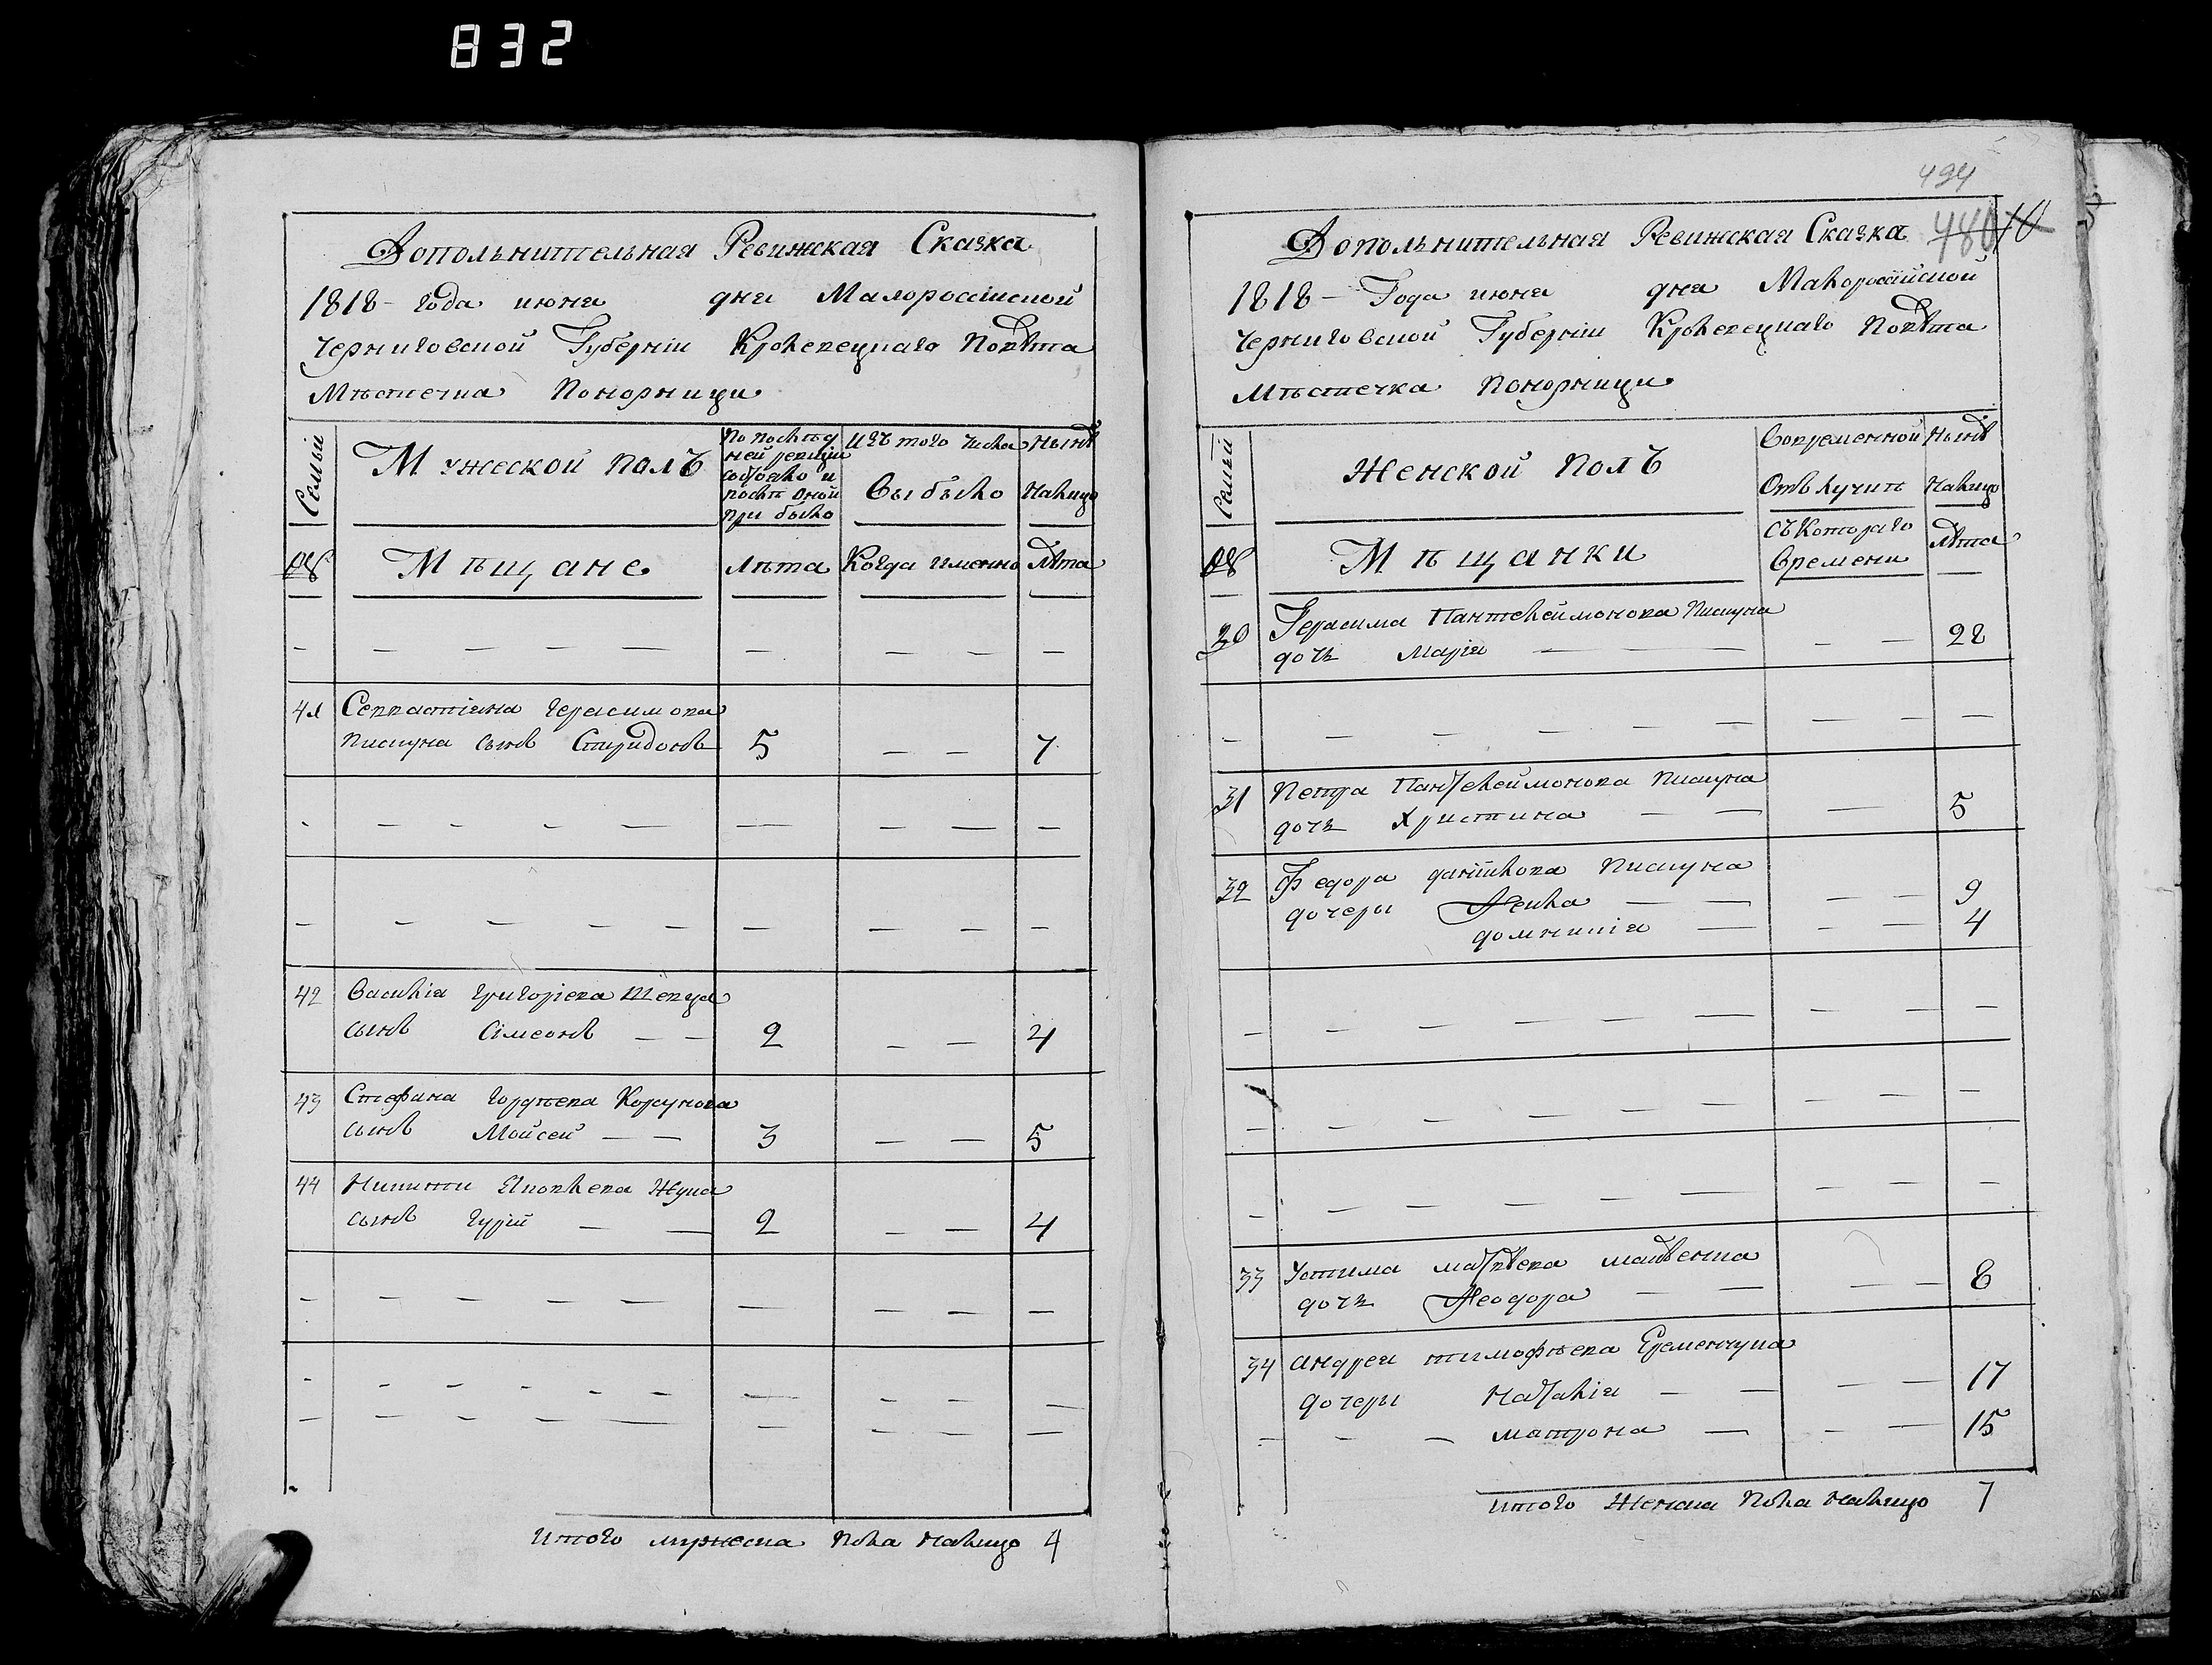 832
Дополънителъная Ревижская Сказка
1818- года июня дня Малоросийской
Черниговской Губернiи Кролевецкаго Повѣта
Мѣстечка Понорници
Семьи
Мужеской полъ
По послѣд
ней ревизiи
состояло и
послѣ оной
при было
изъ того числа
выбыло
Нынѣ
Налицо
№
Мѣщане
Лѣта
Когда именно
Лѣта
41 Севвастiяна Герасимова
Писцуна сынъ Спиридонъ 5 — — 7
42 Василiя Григорiева Шевца
сынъ Сiмеонъ — — 2 — — 4
43 Стефана Гордѣева Корсунова
сынъ Мойсей — — 3 — — 5
44 Никиты Яковлева Жука
сынъ Гурiй — — 2 — — 4
Итого мужеска пола налицо 4
494
480
10
Дополънителъная Ревижская Сказка
1818- Года июня дня Малоросiйской
Черниговской Губернiи Кролевецкаго Повѣта
Мѣстечка Понорници
Семьи
Женской полъ
Вовременной
Отълучкѣ
Нынѣ
Налицо
№
Мѣщанки
съ Котораго
Времени
Лѣта
20 Герасима Пантелеймонова Писцуна
дочь Марiя — — — — — 28
31 Петра Пантелеймонова Писцуна
дочь Христина — — — 5
32 Федора данiйлова Писцуна
дочеры Феκла — — — — 9
домникiя — — — 4
33 Устима матвѣева
дочь Феодора — — — — 8
34 Андрея тимофѣева Еременчука
дочеры Наталiя — — — — 17
матрона — — — 15
Итого Женска Пола налицо 7